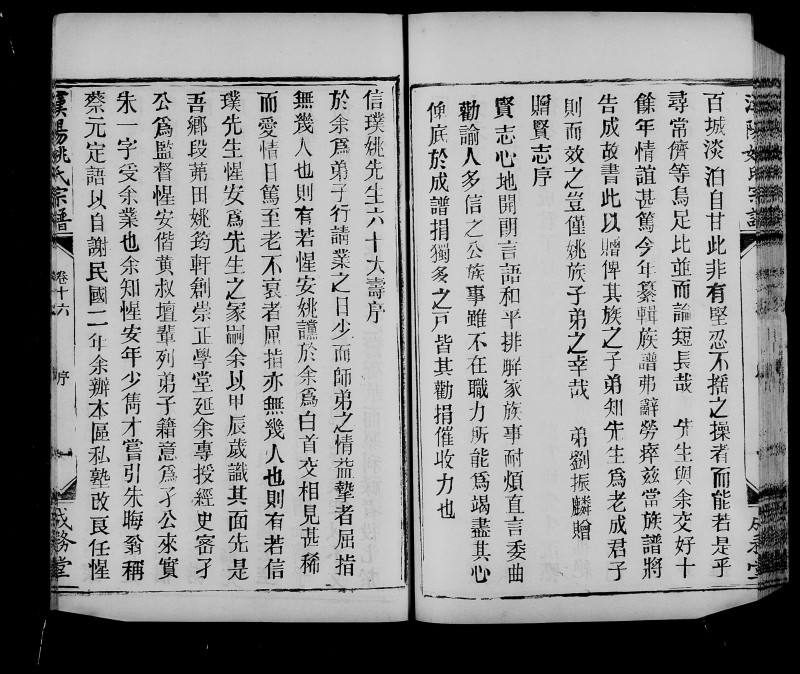 百城淡泊自甘此非有堅忍不㧞之操者而能若是乎
尋常儕等烏足比並而論短長哉 先生與余交好十
餘年情誼甚篤今年纂輯族譜弗辭勞瘁茲當族譜將
告成故書此以贈俾其族之子弟知先生爲老成君子
則而效之豈僅姚族子弟之幸哉 弟劉振麟贈
贈賢志序
賢志心地開朗言語和平排解家族事耐煩直言委曲
勸諭人多信之公族事雖不在職力所能爲竭盡其心
俾底於成譜捐獨多之戸皆其勸捐催收力也
信璞姚先生六十大壽序
於余爲弟子行請業之日少而師弟之情益摯者屈指
無幾人也則有若惺安姚讜於余爲白首交相見甚稀
而愛情日篤至老不衰者屈指亦無幾人也則有若信
璞先生惺安爲先生之冡嗣余以甲辰歲識其面先是
吾鄉段茀田姚筠軒創崇正學堂延余專授經史宻子
公爲監督惺安偕黄叔壇輩列弟子籍意爲子公來實
朱一字受余業也余知惺安年少雋才嘗引朱晦翁稱
蔡元定語以自謝民國二年余辦本區私塾改良任惺
漢陽姚氏宗譜
卷十六
序
成務堂